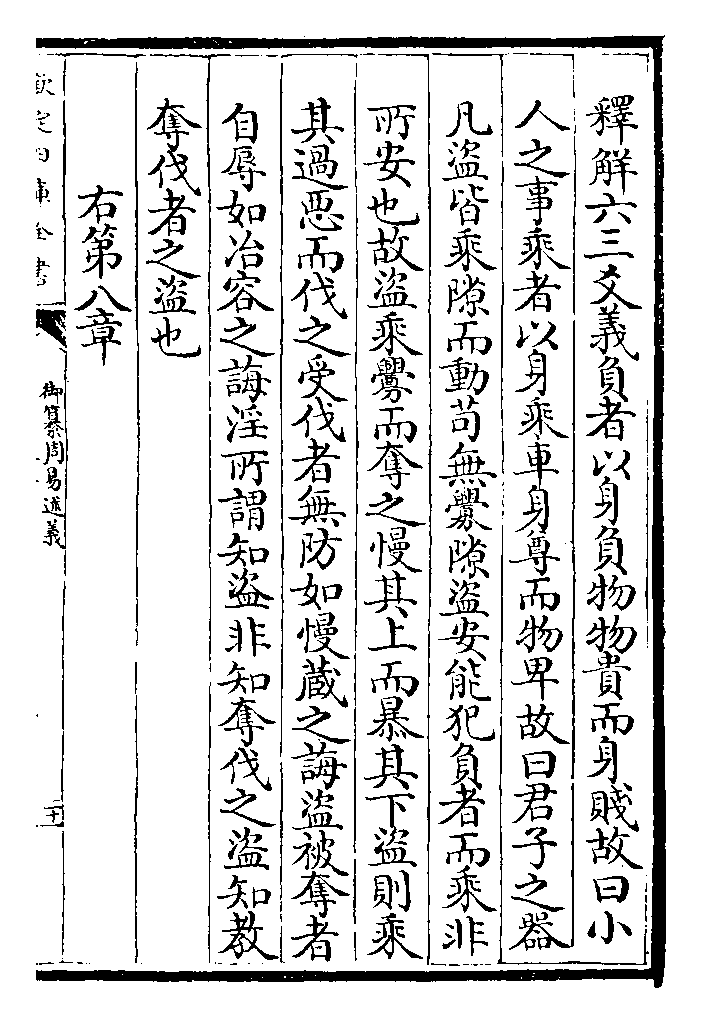 釋解六三爻義負者以身負物物貴而身賤故曰小
人之事乘者以身乘車身尊而物卑故曰君子之器
凡盜皆乘隙而動苟無釁隙盜安能犯負者而乘非
所安也故盜乘釁而奪之慢其上而暴其下盜則乘
其過惡而伐之受伐者無防如慢藏之誨盜被奪者
自辱如冶容之誨淫所謂知盜非知奪伐之盜知教
奪伐者之盜也
右第八章
欽定四庫全書
御纂周易述義
二十